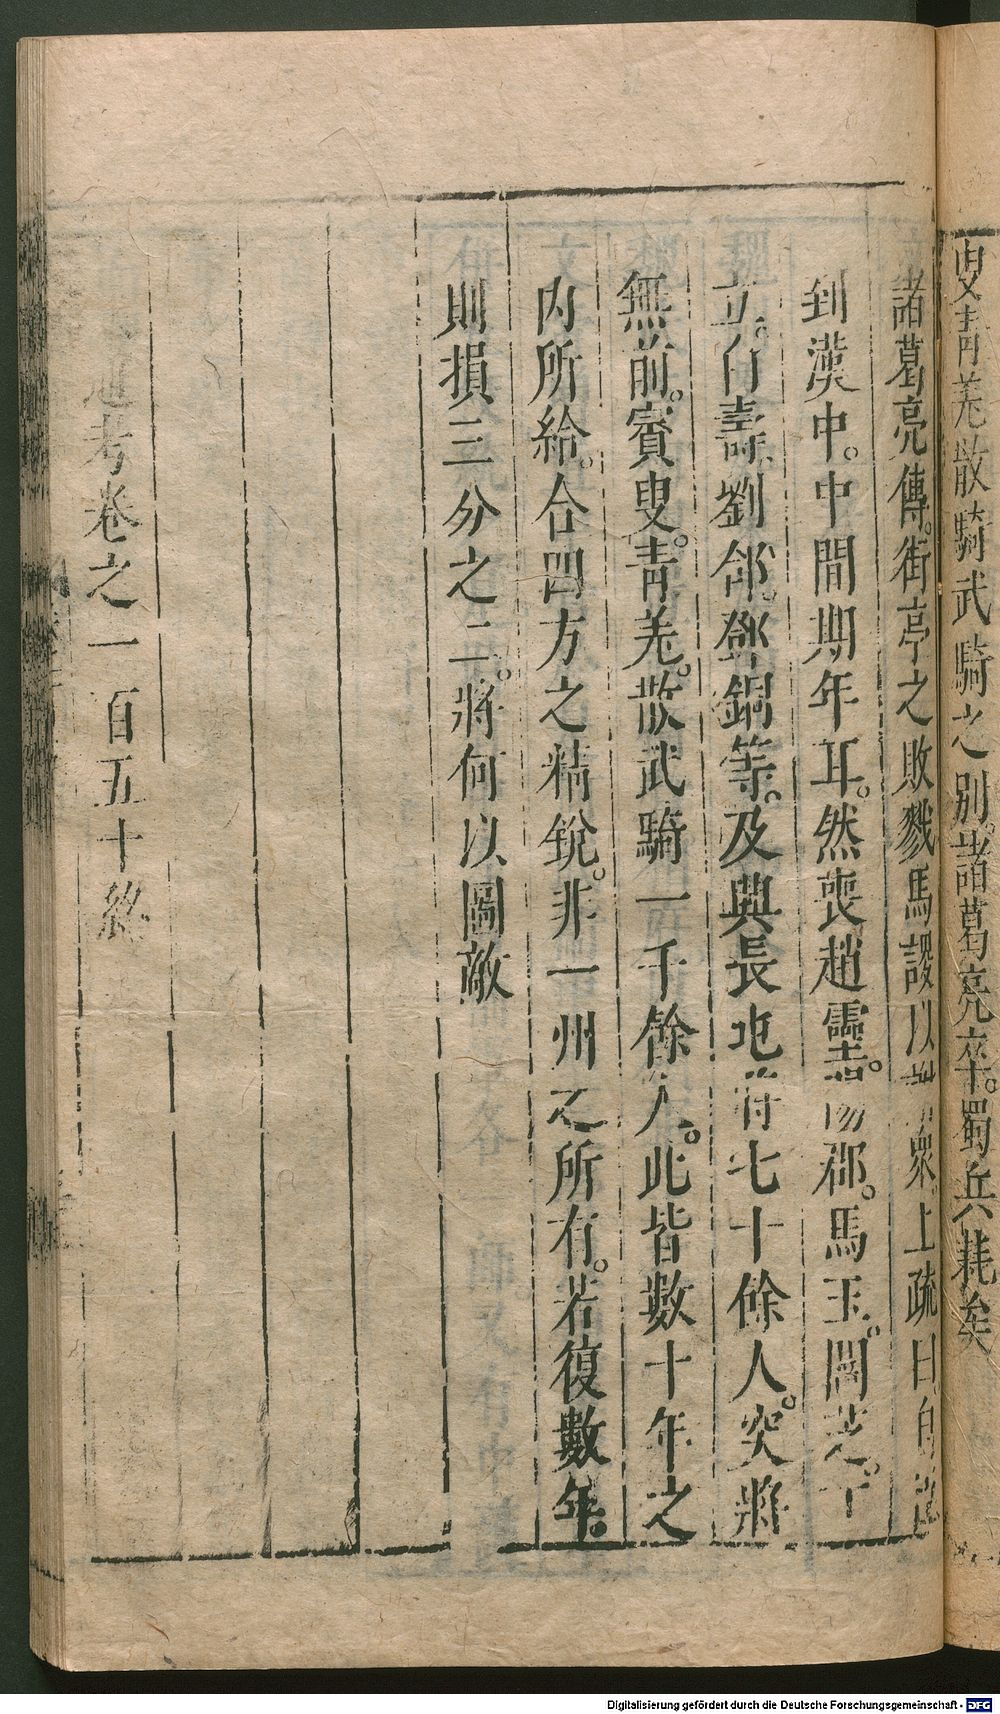 叟靑羌散騎武騎之别。諸葛亮卒。蜀兵耗矣
諸葛亮傳。街亭之敗戮馬謖以衆。上疏曰自
到漢中。中間期年耳。然喪趙雲。陽郡。馬玉。閻芝。丁
立。白壽。劉郃。鄧銅等。及與長屯將七十餘人。突將
無前。賨叟。靑羌。散武騎一千餘人。此皆數十年之
内所給。合四方之精銳。非一州之所有。若復數年。
則損三分之二。將何以圖敵
通考卷之一百五十終
Digitalisierung gefördert durch die Deutsche Forschungsgemeinschaft - DFG